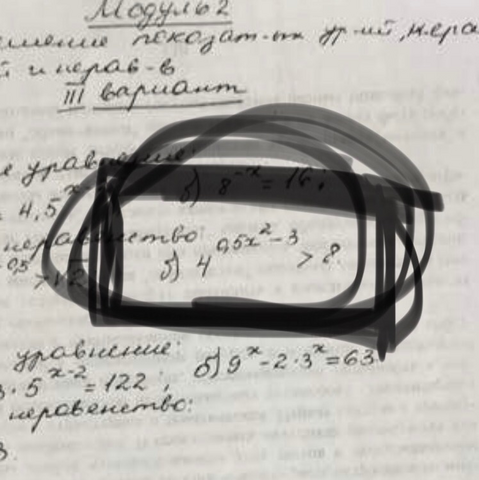 Модуль 2
показат-ых ур-ий, нера
й и нерав-в
III вариант
е уравнение:
4,5^x б) 8^-x = 16;
неравенство:
0,5 > √2 б) 4^0,5x²-3 > 8.
уравнение:
3·5^x-2 = 122; б) 9^x - 2·3^x = 63
неравенство:
3.